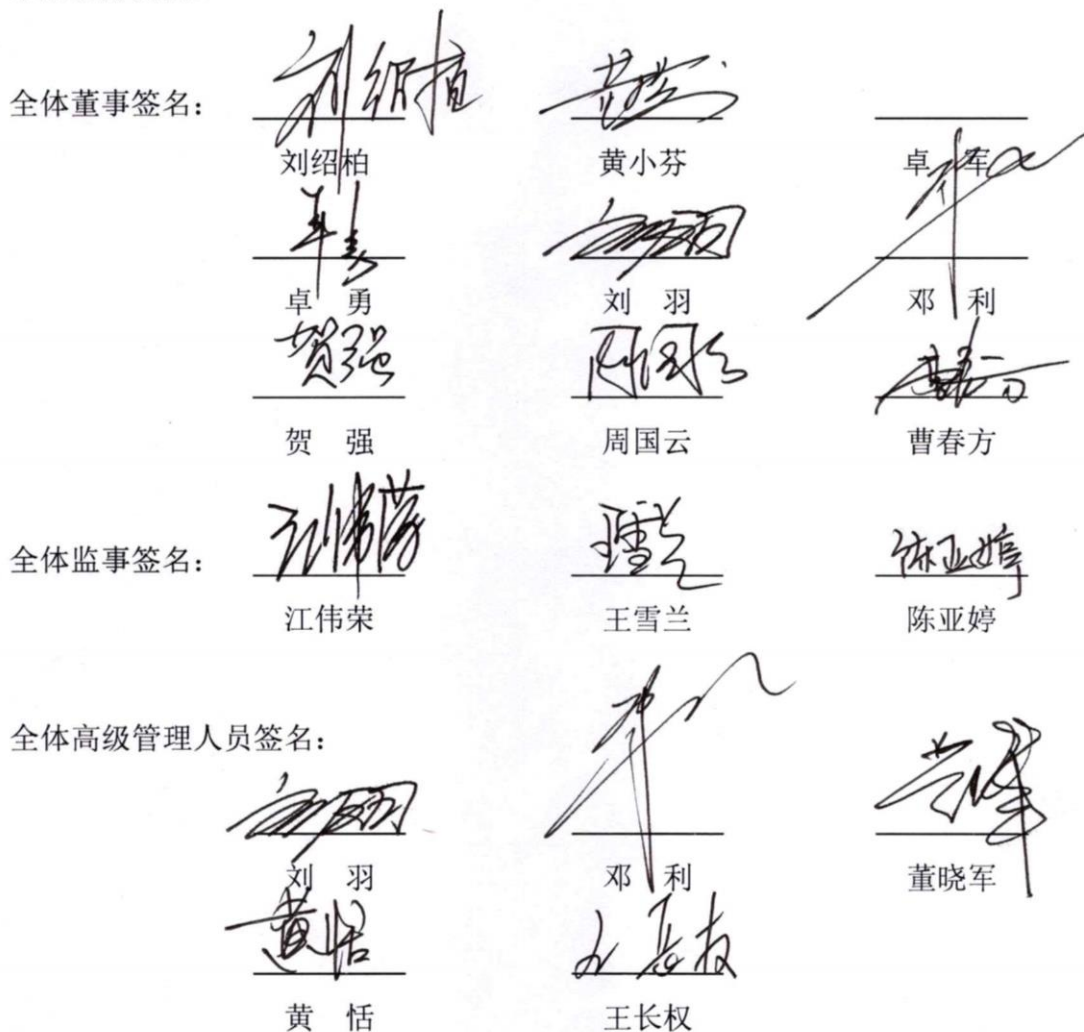 全体董事签名：
刘绍柏 黄小芬 卓 军
卓 勇 刘 羽 邓 利
贺强
贺 强 周国云 曹春方
全体监事签名：
陈亚婷
江伟荣 王雪兰 陈亚婷
全体高级管理人员签名：
刘 羽 邓 利 董晓军
黄恬
黄 恬 王长权